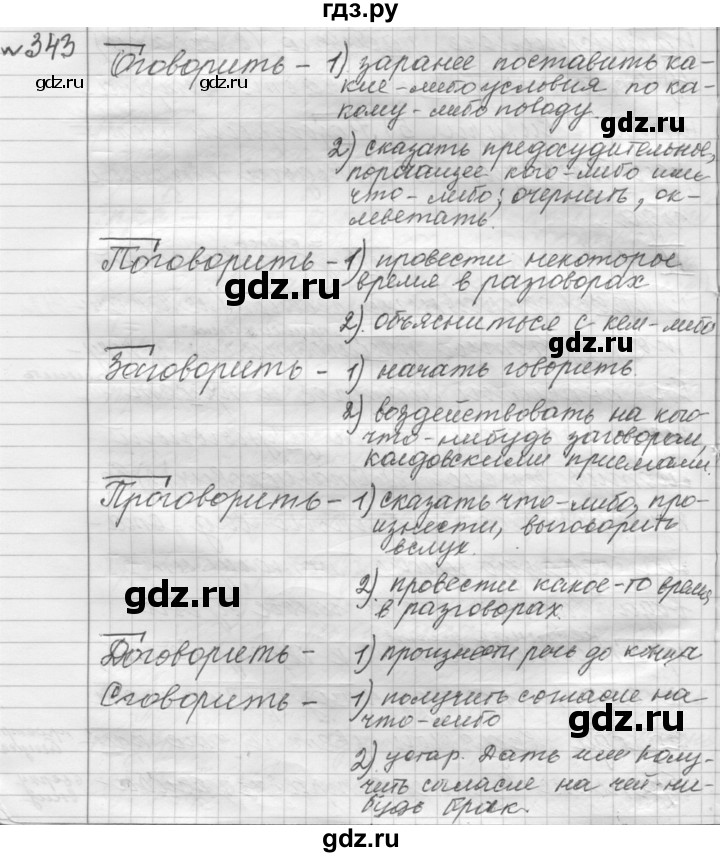 гдз.ру
№343
Оговорить - 1) заранее поставить ка-
кие-либо условия по ка-
кому-либо поводу.
2) сказать предосудительное,
порочащее кого-либо или
что-либо; очернить, ок-
леветать.
Поговорить - 1) провести некоторое
время в разговорах
2) объясниться с кем-либо
Заговорить - 1) начать говорить.
2) воздействовать на кого
что-нибудь заговорам,
колдовскими приемами.
Проговорить - 1) сказать что-либо, про-
изнести, выговорить
вслух.
2) провести какое-то время
в разговорах.
Договорить - 1) произнести речь до конца
Сговорить - 1) получить согласие на
что-либо
2) устар. Дать или полу-
чить согласие на чей-ни-
будь брак.
gdz.ru
gdz.ru
gdz.ru
gdz.ru
gdz.ru
gdz.ru
gdz.ru
gdz.ru